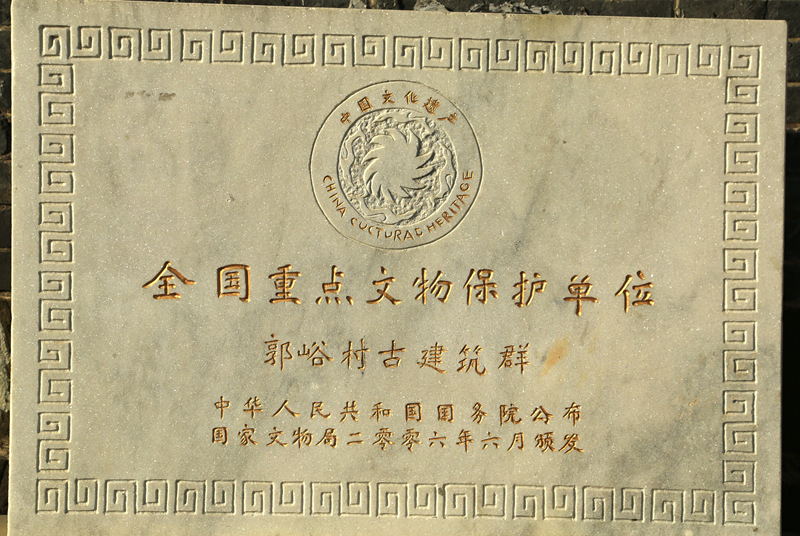 中国文化遗产
CHINA CULTURAL HERITAGE
全国重点文物保护单位
郭峪村古建筑群
中华人民共和国国务院公布
国家文物局二零零六年六月颁发